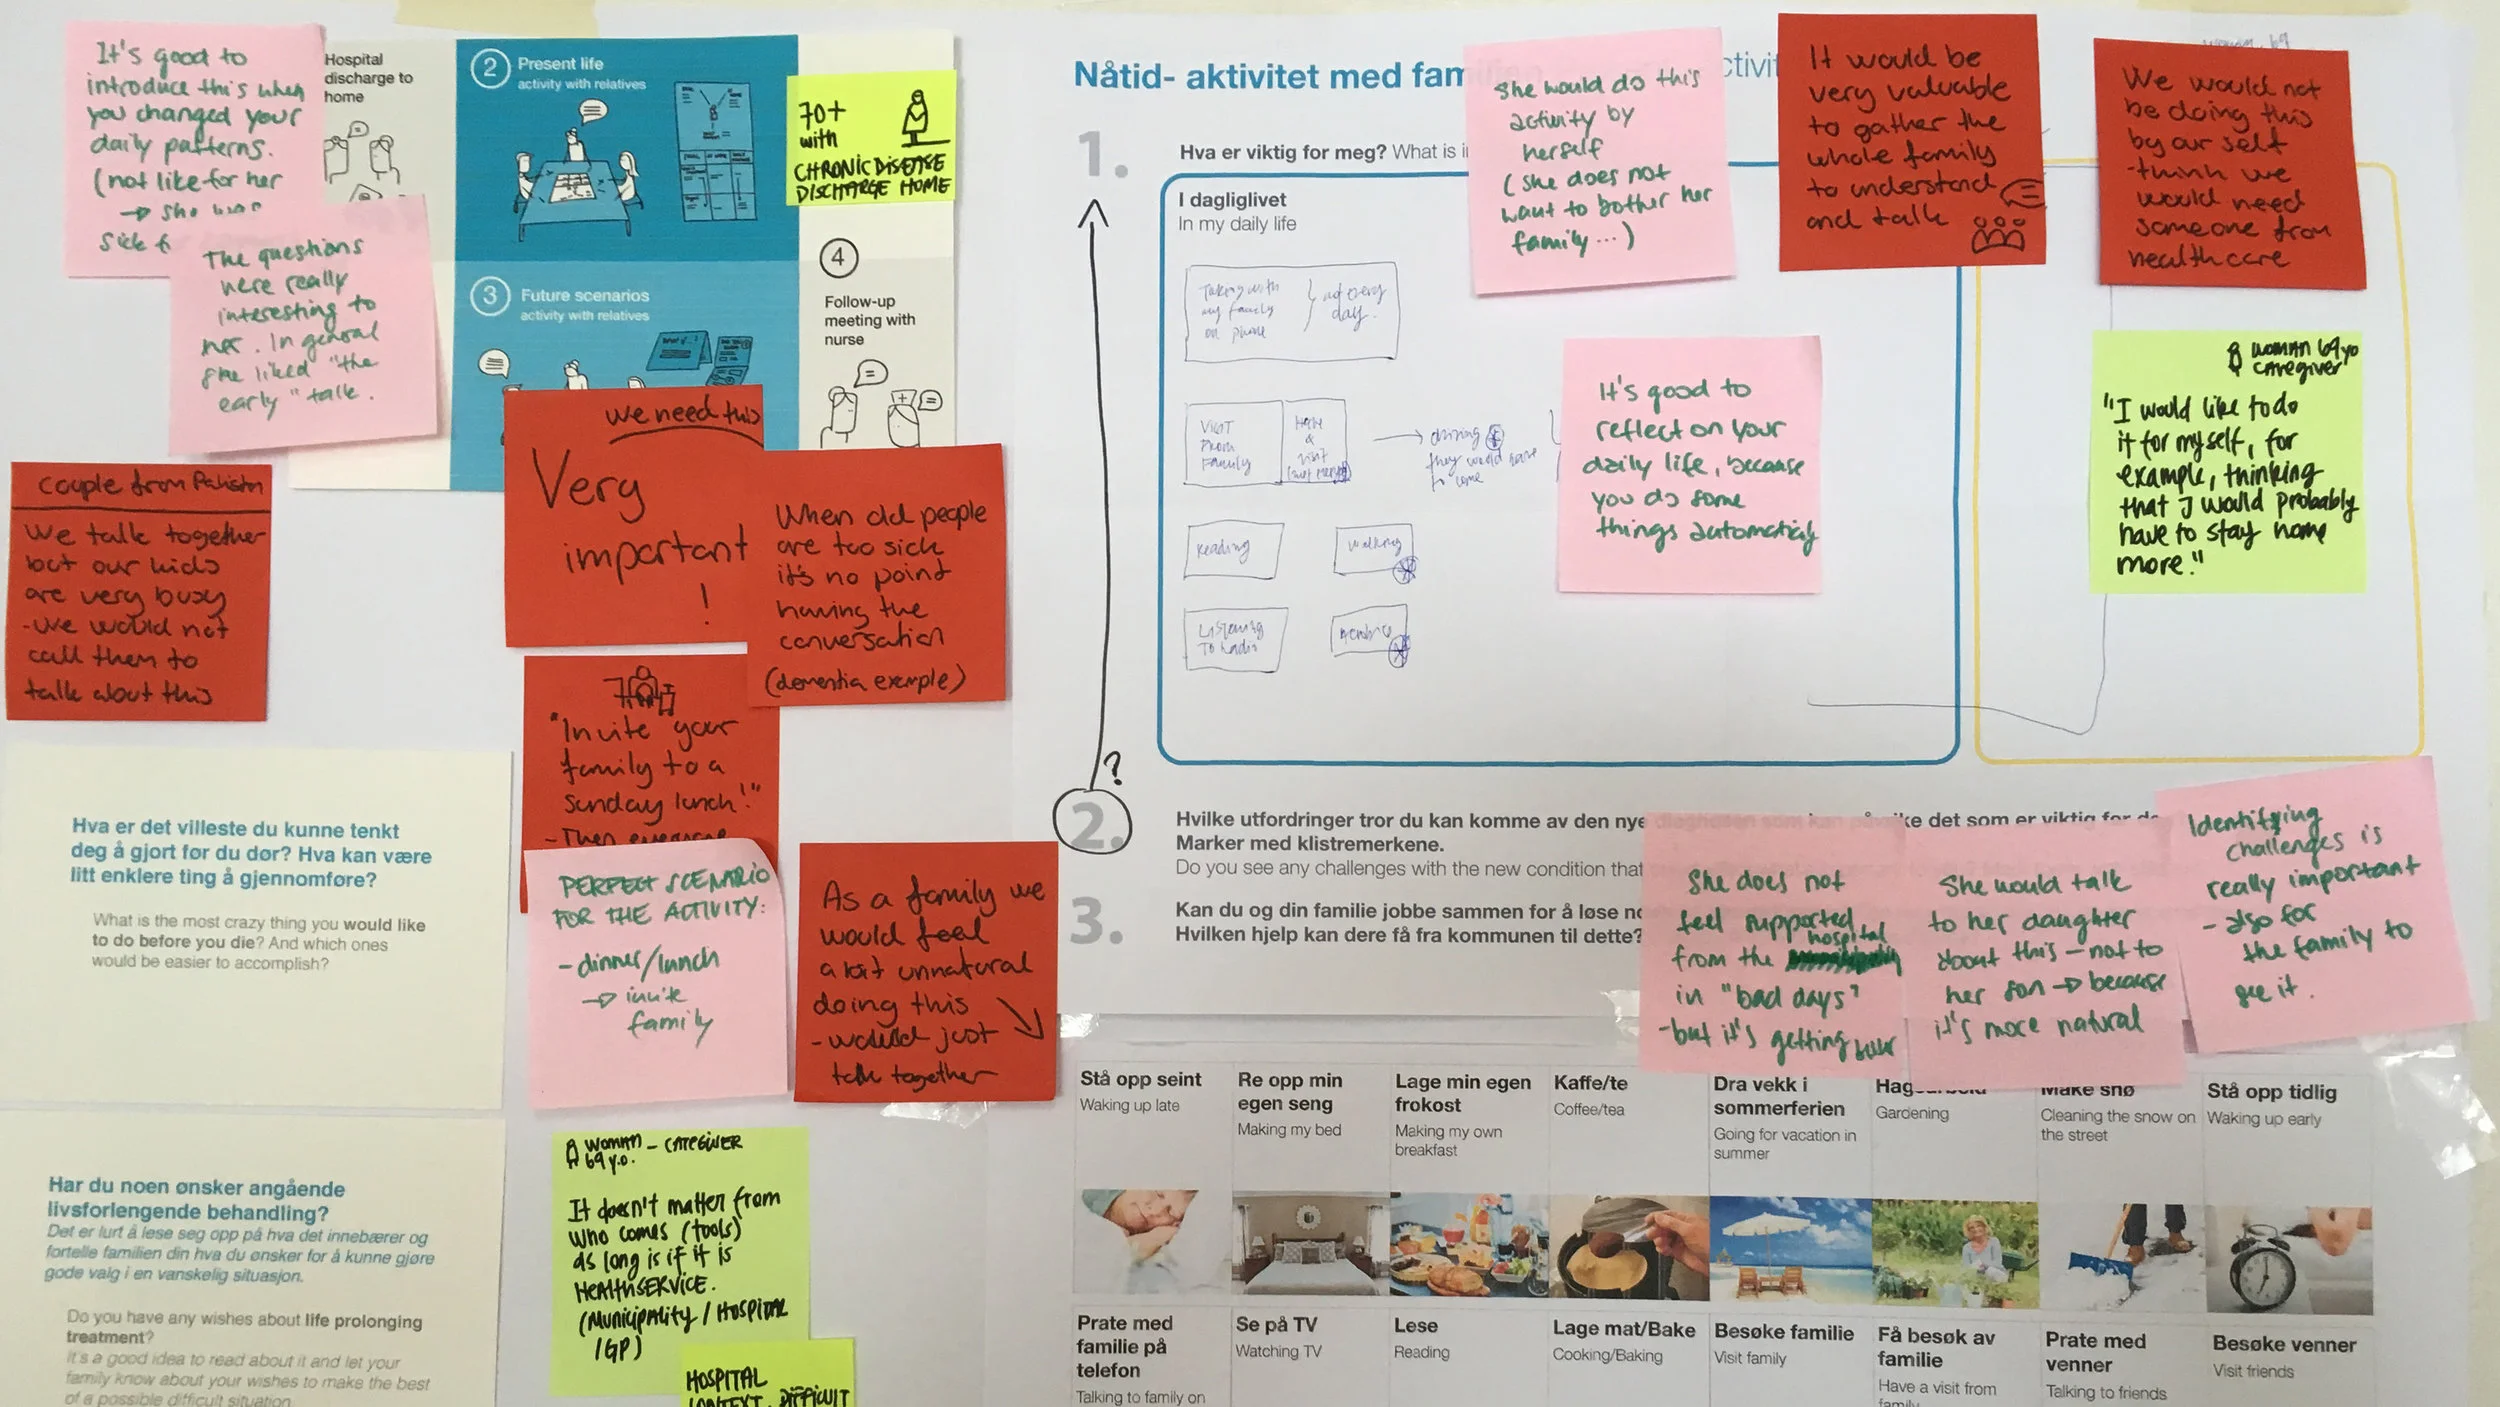 It's good to
introduce this when
you changed your
daily patterns.
(not like for her
→ she was
sick f
The questions
were really
interesting to
her. In general
she liked "the
early" talk.
Hospital
discharge to
home
2 Present life
activity with relatives
3 Future scenarios
activity with relatives
70+
with
CHRONIC DISEASE
DISCHARGE HOME
4
Follow-up
meeting with
nurse
we need this
Very
important
!
When old people
are too sick
it's no point
having the
conversation
(dementia example)
couple from Pakistan
We talk together
but our kids
are very busy
- we would not
call them to
talk about this
"Invite your
family to a
sunday lunch!"
- Then everyone
PERFECT SCENARIO
FOR THE ACTIVITY:
- dinner/lunch
→ invite
family
As a family we
would feel
a bit unnatural
doing this
- would just
talk together
Hva er det villeste du kunne tenkt
deg å gjort før du dør? Hva kan være
litt enklere ting å gjennomføre?
What is the most crazy thing you would like
to do before you die? And which ones
would be easier to accomplish?
Har du noen ønsker angående
livsforlengende behandling?
Det er lurt å lese seg opp på hva det innebærer og
fortelle familien din hva du ønsker for å kunne gjøre
gode valg i en vanskelig situasjon.
Do you have any wishes about life prolonging
treatment?
It's a good idea to read about it and let your
family know about your wishes to make the best
of a possible difficult situation
WOMAN - CAREGIVER
69 y.o.
It doesn't matter from
who comes (tools)
as long is if it is
HEALTHSERVICE.
(Municipality / HOSPITAL
/GP)
HOSPITAL
CONTEXT. DIFFICULT
Nåtid- aktivitet med familien
She would do this
activity by
herself
(she does not
want to bother her
family ...)
It would be
very valuable
to gather the
whole family
to understand
and talk
We would not
be doing this
by our self
- think we
would need
someone from
healthcare
1.
Hva er viktig for meg? What is i
I dagliglivet
In my daily life
Talking with
my family
on phone
not every
day.
VISIT
FROM
FAMILY
Have
&
visit
→ driving
they would have
to come
Reading
walking
LISTENING
TO radio
It's good to
reflect on your
daily life, because
you do some
things automaticly
WOMAN 69 yo
CAREGIVER
"I would like to do
it for myself, for
example, thinking
that I would probably
have to stay home
more."
?
2.
Hvilke utfordringer tror du kan komme av den nye diagnosen som kan påvirke det som er viktig for de
Marker med klistremerkene.
Do you see any challenges with the new condition that
3.
Kan du og din familie jobbe sammen for å løse no
Hvilken hjelp kan dere få fra kommunen til dette?
She does not
feel supported
from the hospital
in "bad days"
- but it's getting better
She would talk
to her daughter
about this - not to
her son → because
it's more natural
Identifying
challenges is
really important
- also for
the family to
see it.
Stå opp seint
Waking up late
Re opp min
egen seng
Making my bed
Lage min egen
frokost
Making my own
breakfast
Kaffe/te
Coffee/tea
Dra vekk i
sommerferien
Going for vacation in
summer
Hagearbeid
Gardening
Måke snø
Cleaning the snow on
the street
Stå opp tidlig
Waking up early
Prate med
familie på
telefon
Talking to family on
Se på TV
Watching TV
Lese
Reading
Lage mat/Bake
Cooking/Baking
Besøke familie
Visit family
Få besøk av
familie
Have a visit from
family
Prate med
venner
Talking to friends
Besøke venner
Visit friends